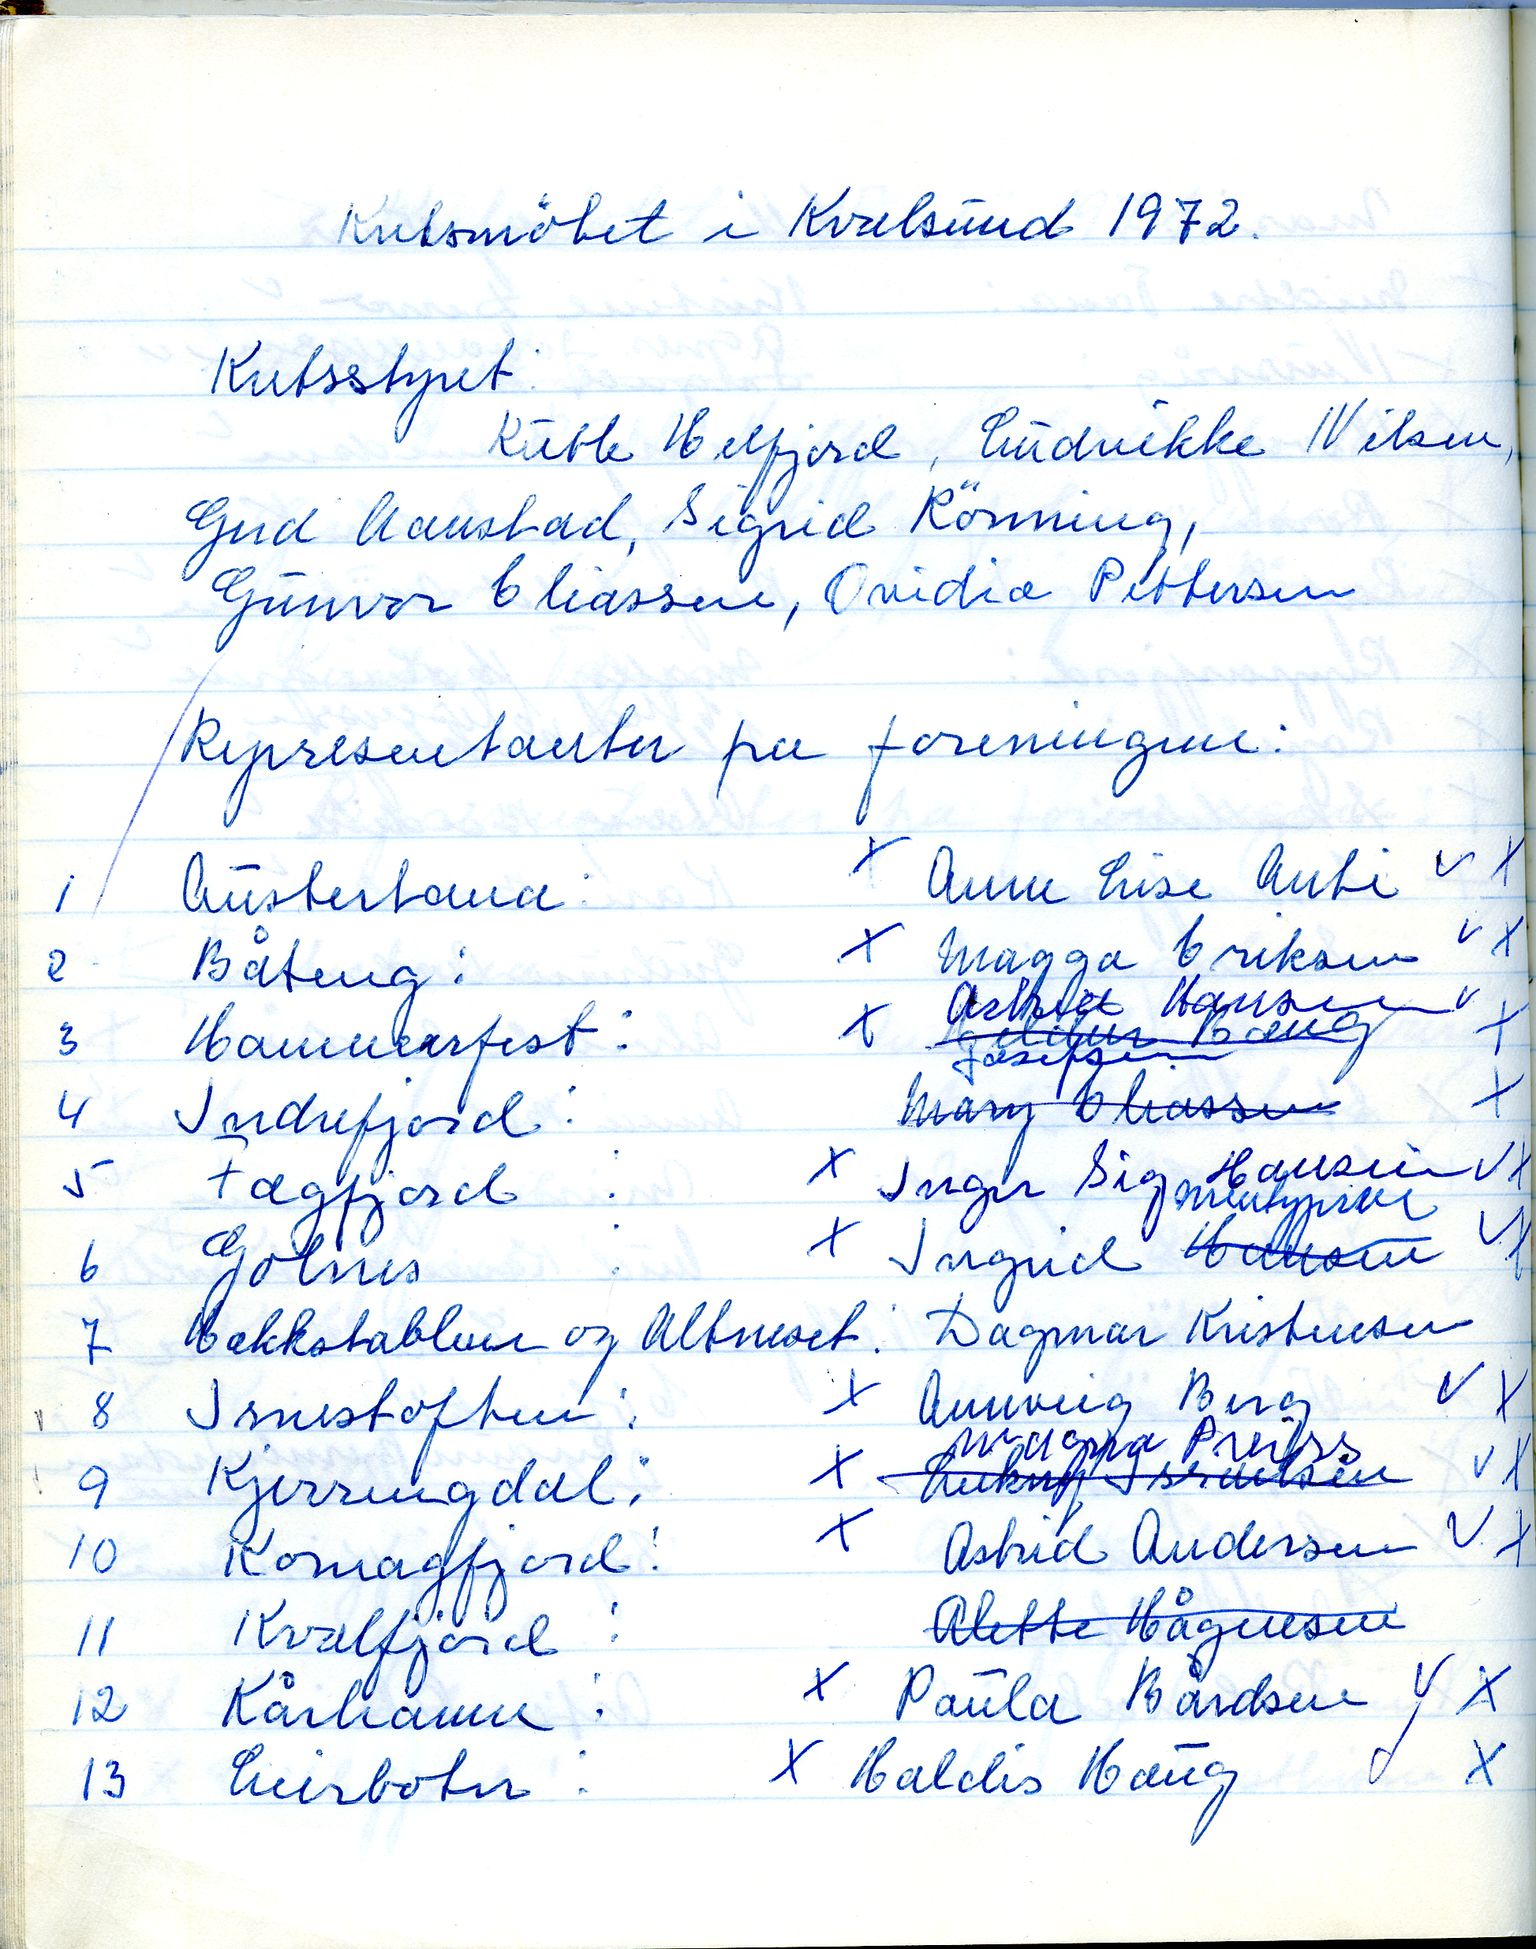 Kretsmötet i Kvalsund 1972.
Kretsstyret:
Käthe Helfjord, Ludvikke Nilsen,
Gerd Aanstad, Sigrid Rönning,
Gunvor Eliassen, Ovidia Pettersen
Representanter fra foreningene:
1 Austertana: X Anne Lise Anti V X
2 Båteng: X Magga Eriksen V X
3 Hammerfest: X Astrid Hansen V X
Haug
Josefsen
4 Indrefjord: Mary Eliassen X
5 Fægfjord : X Inger Sig Hansen V X
6 Golnes : X Ingrid Hansen V X
7 Hakkstabben og Altneset: Dagmar Kristensen
8 Isnestoften: X Annveig Berg V X
9 Kjerringdal: X Magna Preiss V X
Israelsen
10 Komagfjord: X Astrid Andersen V X
11 Kvalfjord : Alette Hågensen
12 Kårhamn : X Paula Bårdsen V X
13 Leirbotn : X Haldis Haug V X